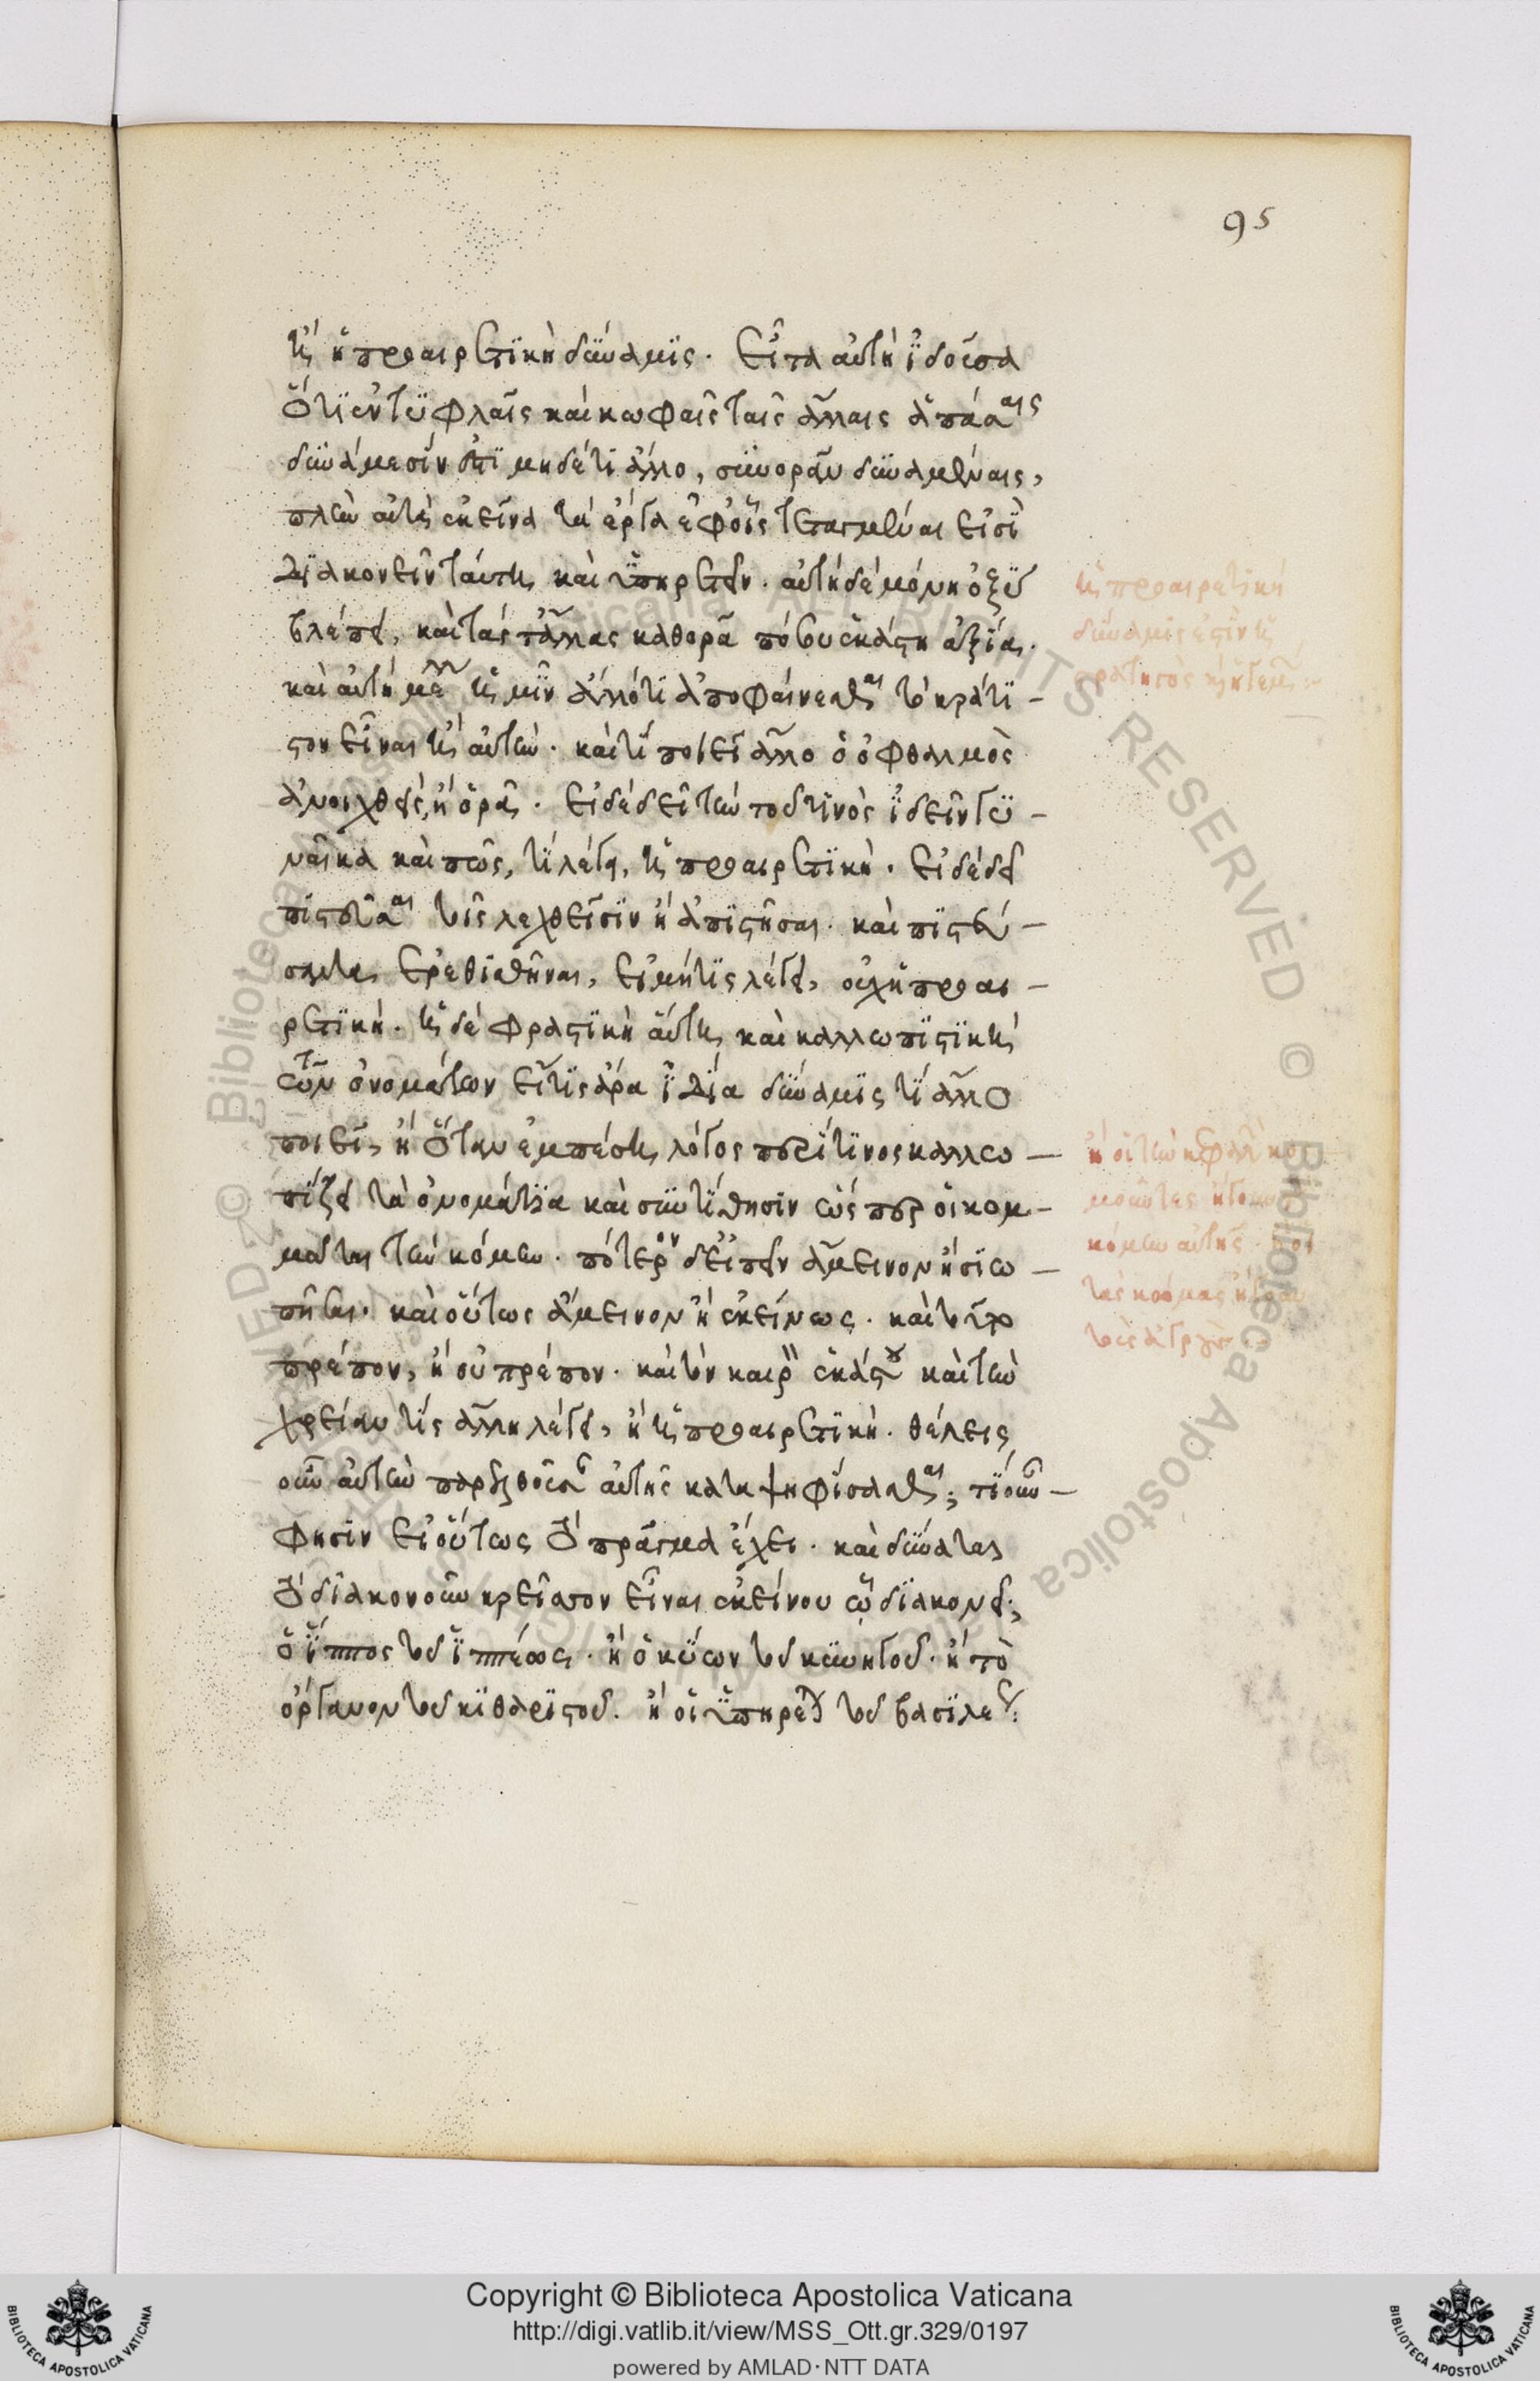 95
ἢ ἡ προαιρετικὴ δύναμις. εἶτα αὐτὴ ἰδοῦσα
ὅτι ἐν τυφλαῖς καὶ κωφαῖς ταῖς ἄλλαις ἁπάσαις
δυνάμεσιν ἐπὶ μηδέτι ἄλλο, συνορᾶν δυναμέναις,
πλὴν αὐτὰ ἐκεῖνα τὰ ἔργα ἐφ' οἷς τεταγμέναι εἰσὶ
διακονεῖν ταύτῃ καὶ ὑπηρετεῖν. αὐτὴ δὲ μόνη ὀξὺ
βλέπει, καὶ τὰς τ' ἄλλας καθορᾷ πόσου ἑκάστη ἀξία.
καὶ αὐτὴ μέλλει ἡμῖν ἄλλό τι ἀποφαίνεσθαι τὸ κράτι-
στον εἶναι ἢ αὐτήν. καὶ τί ποιεῖ ἄλλο ὁ ὀφθαλμὸς
ἀνοιχθείς, ἢ ὁρᾷ. εἰ δὲ δεῖ τὴν τοῦ τινὸς ἰδεῖν γυ-
ναῖκα καὶ πῶς, τί λέγει, ἡ προαιρετική. εἰ δὲ δεῖ
πιστεῦσαι τοῖς λεχθεῖσιν ἢ ἀπιστῆσαι. καὶ πιστεύ-
σαντα ἐρεθισθῆναι, ἢ μή τίς λέγει, οὐχ ἡ προαι-
ρετική. ἡ δὲ φραστικὴ αὕτη καὶ καλλωπιστικὴ
τῶν ὀνομάτων εἴ τις ἄρα ἰδία δύναμις τί ἄλλο
ποιεῖ, ἢ ὅταν ἐμπέσῃ λόγος περί τινος καλλω-
πίζει τὰ ὀνομάτια καὶ συντίθησιν ὥσπερ οἱ κομ-
μωταὶ τὴν κόμην. πότερον δ' εἰπεῖν ἄμεινον ἢ σιω-
πῆσαι. καὶ οὕτως ἄμεινον ἢ ἐκείνως. καὶ τοῦτο
πρέπον, ἢ οὐ πρέπον. καὶ τὸν καιρὸν ἑκάστου καὶ τὴν
χρείαν τίς ἄλλη λέγει, ἢ ἡ προαιρετική. θέλεις
οὖν αὐτὴν παρελθοῦσαν αὐτῆς καταψηφίσασθαι; τί οὖν-
φησὶν εἰ οὕτως τὸ πρᾶγμα ἔχει. καὶ δύναται
τὸ διακονοῦν κρεῖσσον εἶναι ἐκείνου ᾧ διακονεῖ;
ὁ ἵππος τοῦ ἱππέως. ἢ ὁ κύων τοῦ κυνηγοῦ. ἢ τὸ
ὄργανον τοῦ κιθαριστοῦ. ἢ οἱ ὑπηρέται τοῦ βασιλέως:
ἡ προαιρετικὴ
δύναμις ἐστὶν ἡ
Copyright © Biblioteca Apostolica Vaticana
http://digi.vatlib.it/view/MSS_Ott.gr.329/0197
powered by AMLAD·NTT DATA